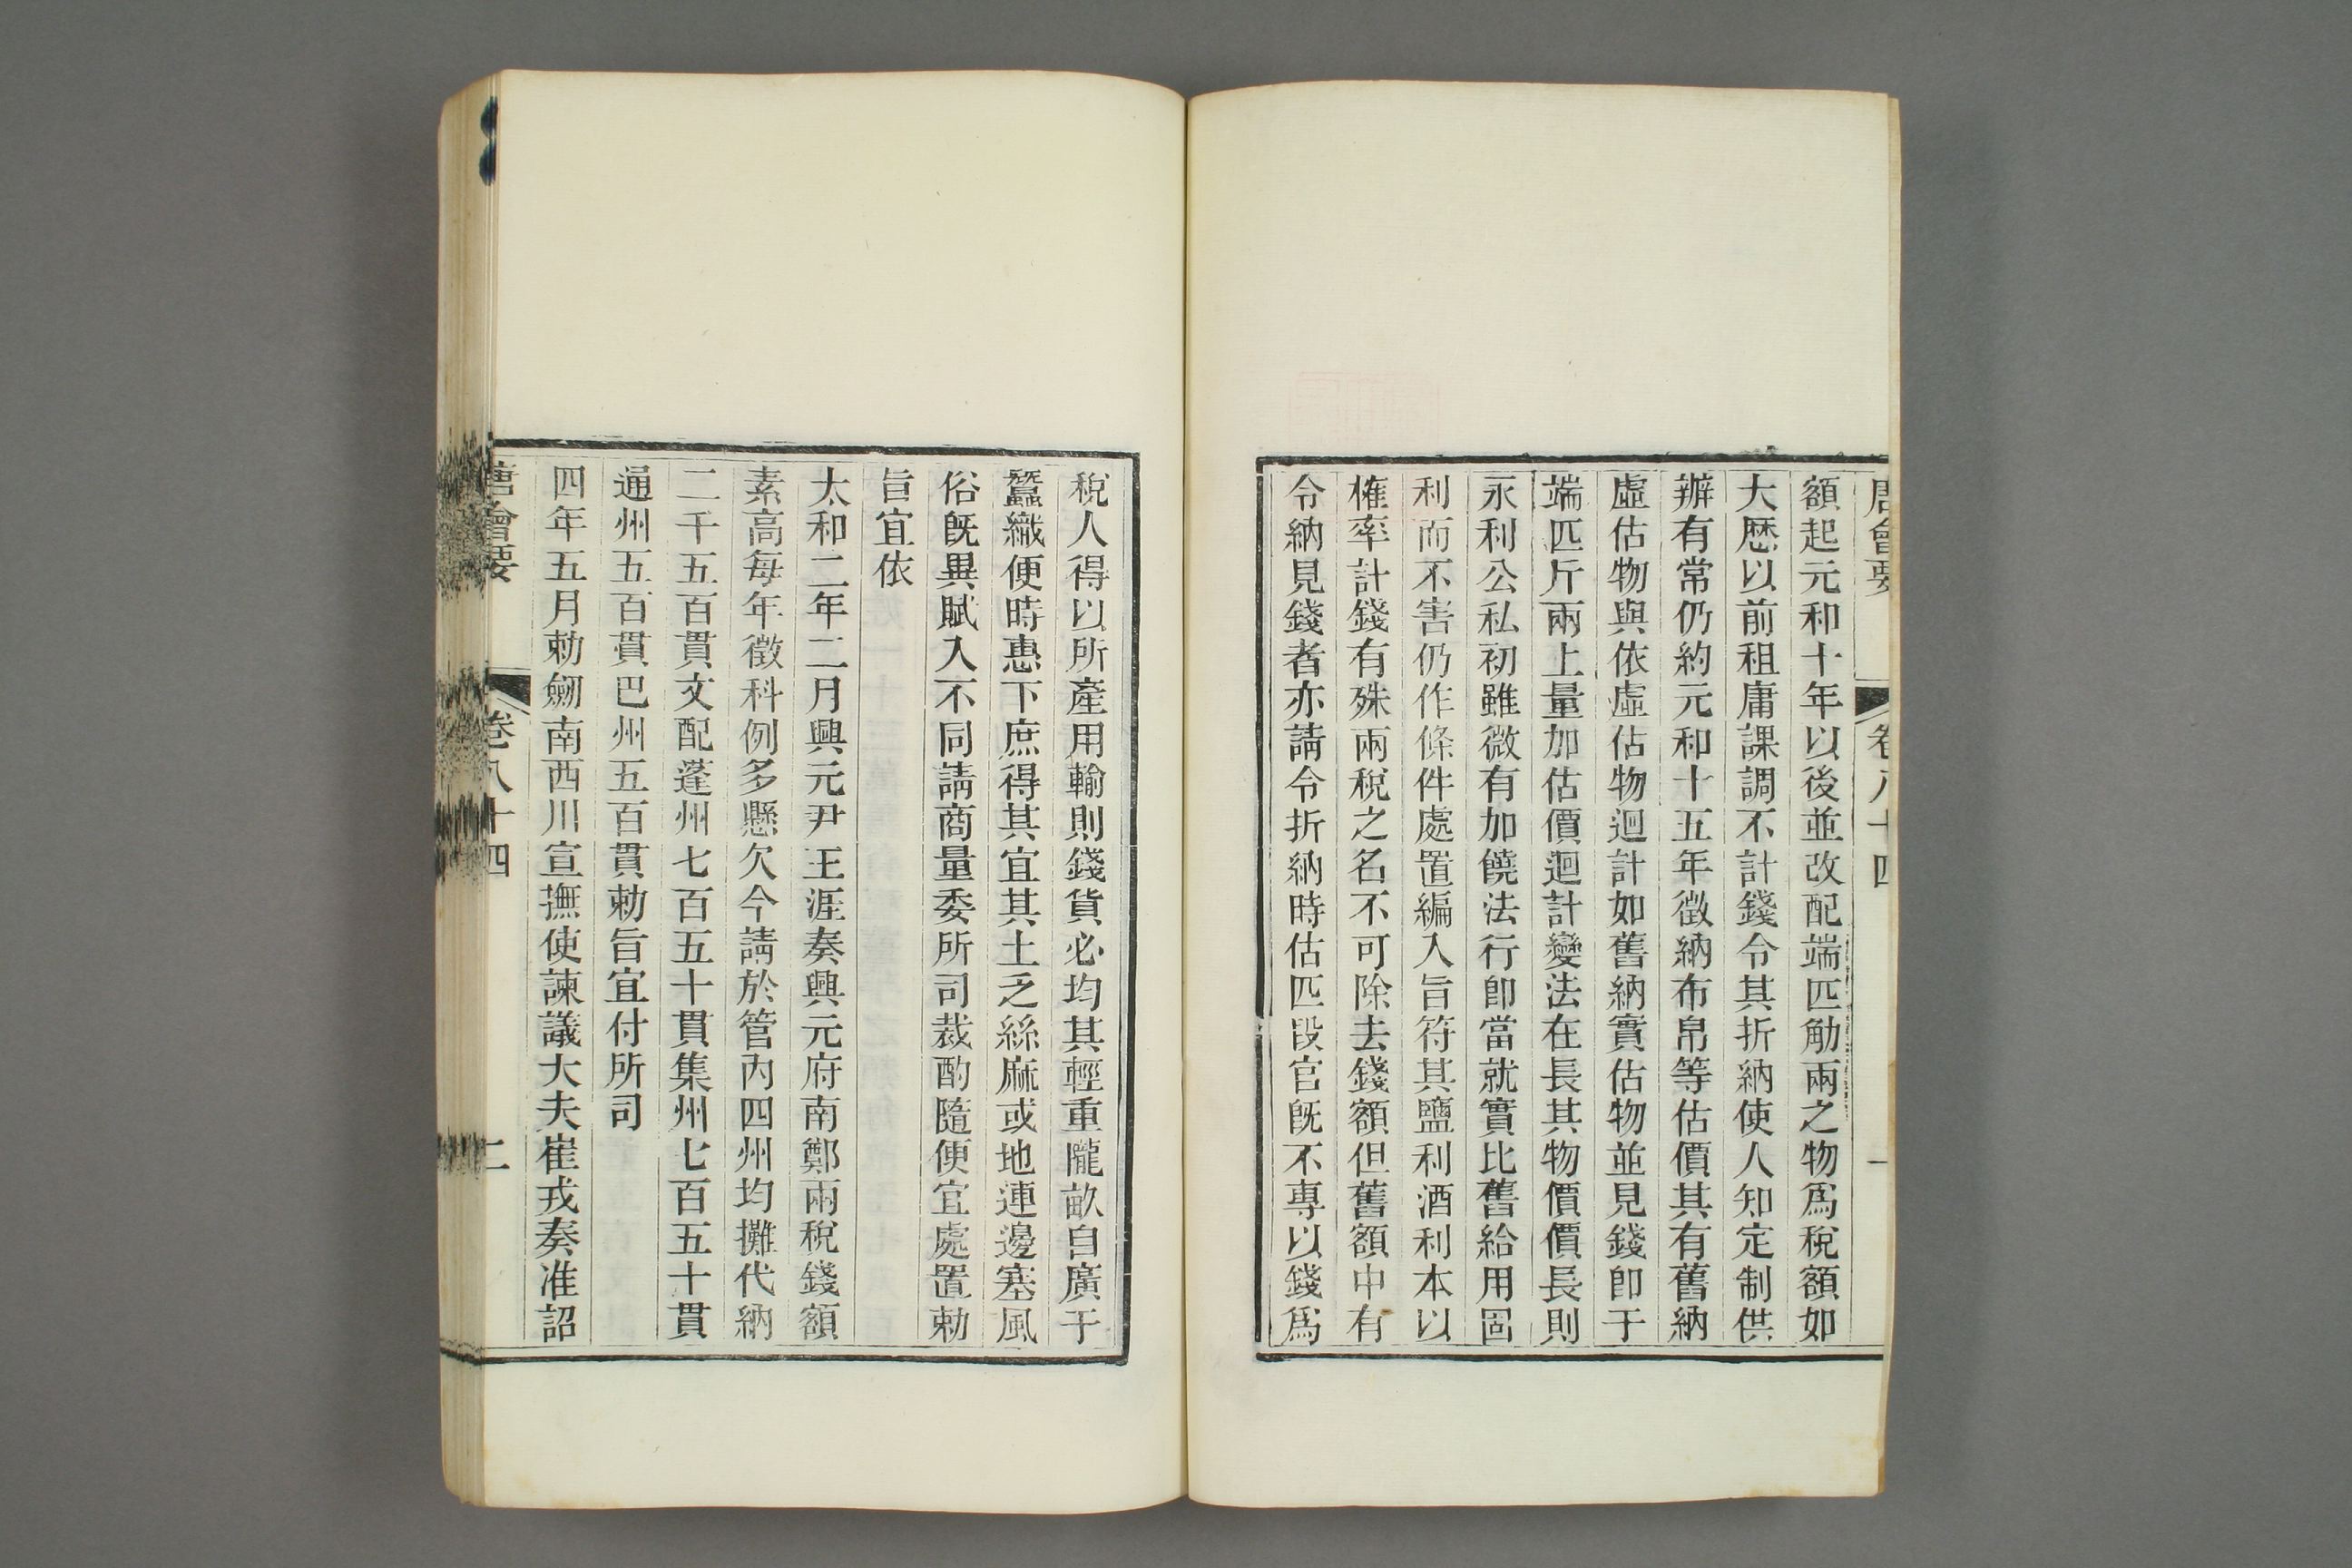 唐會要 卷八十四 一
額起元和十年以後並改配端匹觔兩之物爲稅額如
大曆以前租庸課調不計錢令其折納使人知定制供
辦有常仍約元和十五年徵納布帛等估價其有舊納
虛估物與依虛估物迴計如舊納實估物並見錢卽于
端匹斤兩上量加估價迴計變法在長其物價價長則
永利公私初雖微有加饒法行卽當就實比舊給用固
利而不害仍作條件處置編入旨符其鹽利酒利本以
榷率計錢有殊兩稅之名不可除去錢額但舊額中有
令納見錢者亦請令折納時估匹段官旣不專以錢爲
稅人得以所產用輸則錢貨必均其輕重隴畝自廣于
蠶織便時惠下庶得其宜其土乏絲麻或地連邊塞風
俗旣異賦入不同請商量委所司裁酌隨便宜處置勅
旨宜依
太和二年二月興元尹王涯奏興元府南鄭兩稅錢額
素高每年徵科例多懸欠今請於管內四州均攤代納
二千五百貫文配蓬州七百五十貫集州七百五十貫
通州五百貫巴州五百貫勅旨宜付所司
四年五月勅劒南西川宣撫使諫議大夫崔戎奏准詔
唐會要 卷八十四 二